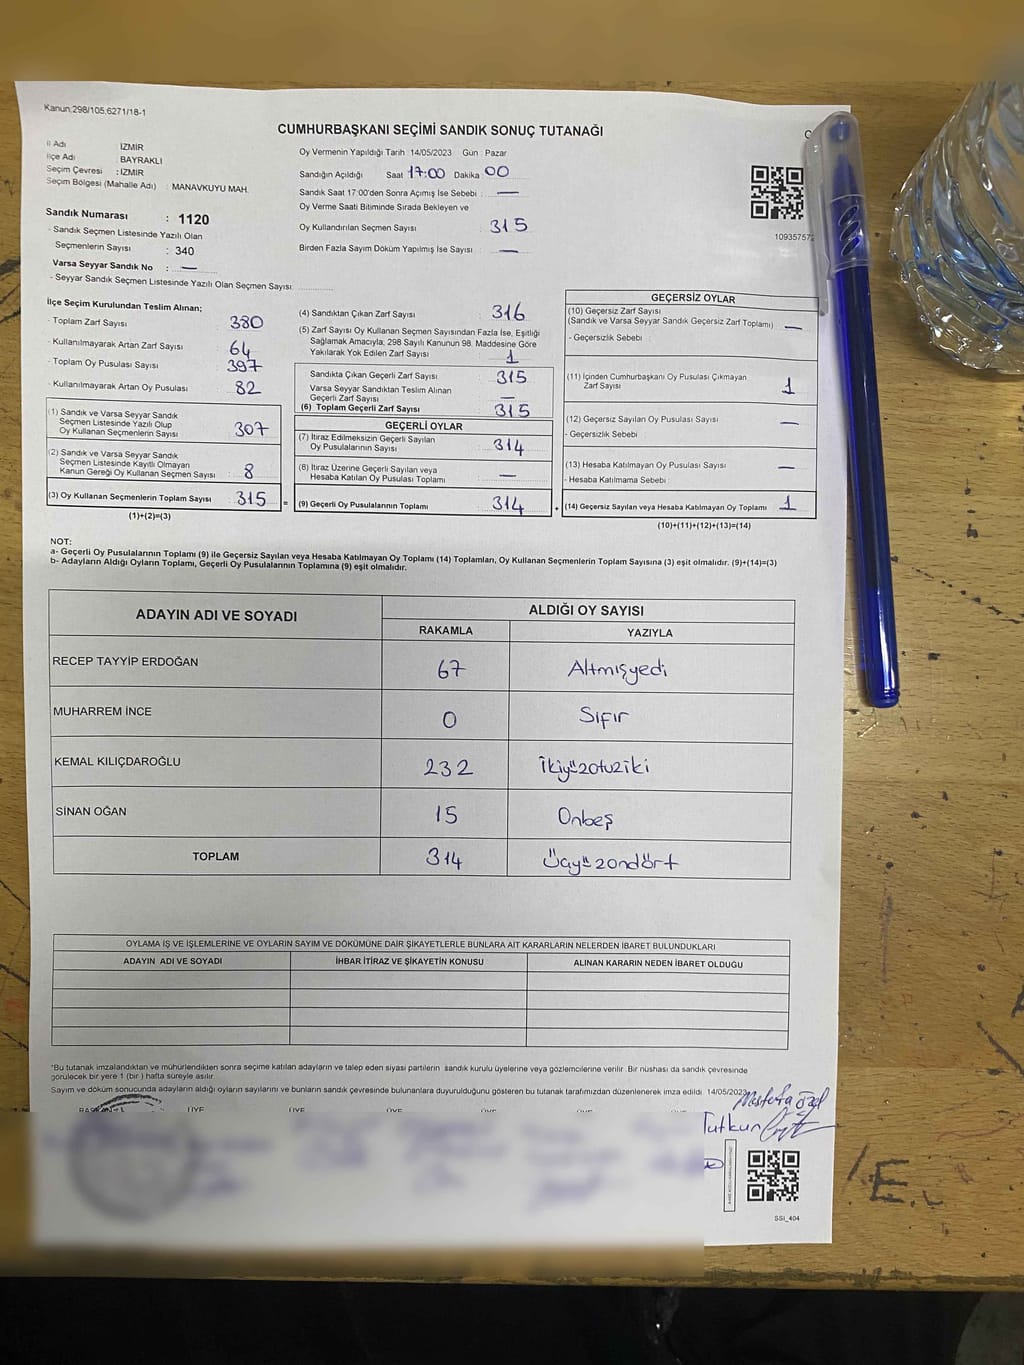 Kanun:298/105.6271/18-1
CUMHURBAŞKANI SEÇİMİ SANDIK SONUÇ TUTANAĞI
İl Adı İZMİR
İlçe Adı BAYRAKLI
Seçim Çevresi : İZMİR
Seçim Bölgesi (Mahalle Adı) : MANAVKUYU MAH.
Sandık Numarası : 1120
- Sandık Seçmen Listesinde Yazılı Olan
Seçmenlerin Sayısı : 340
Varsa Seyyar Sandık No : —
- Seyyar Sandık Seçmen Listesinde Yazılı Olan Seçmen Sayısı:
Oy Vermenin Yapıldığı Tarih :14/05/2023 Gün Pazar
Sandığın Açıldığı Saat 17:00 Dakika 00
Sandık Saat 17:00'den Sonra Açımış İse Sebebi : —
Oy Verme Saati Bitiminde Sırada Bekleyen ve
Oy Kullandırılan Seçmen Sayısı : 315
Birden Fazla Sayım Döküm Yapılmış İse Sayısı : —
109357572
İlçe Seçim Kurulundan Teslim Alınan;
- Toplam Zarf Sayısı : 380
- Kullanılmayarak Artan Zarf Sayısı : 64
- Toplam Oy Pusulası Sayısı : 397
- Kullanılmayarak Artan Oy Pusulası : 82
(1) Sandık ve Varsa Seyyar Sandık
Seçmen Listesinde Yazılı Olup
Oy Kullanan Seçmenlerin Sayısı : 307
(2) Sandık ve Varsa Seyyar Sandık
Seçmen Listesinde Kayıtlı Olmayan
Kanun Gereği Oy Kullanan Seçmen Sayısı : 8
(3) Oy Kullanan Seçmenlerin Toplam Sayısı : 315 =
(1)+(2)=(3)
(4) Sandıktan Çıkan Zarf Sayısı : 316
(5) Zarf Sayısı Oy Kullanan Seçmen Sayısından Fazla İse, Eşitliği
Sağlamak Amacıyla, 298 Sayılı Kanunun 98. Maddesine Göre
Yakılarak Yok Edilen Zarf Sayısı : 1
Sandıkta Çıkan Geçerli Zarf Sayısı : 315
Varsa Seyyar Sandıktan Teslim Alınan
Geçerli Zarf Sayısı : —
(6) Toplam Geçerli Zarf Sayısı : 315
GEÇERLİ OYLAR
(7) İtiraz Edilmeksizin Geçerli Sayılan
Oy Pusulalarının Sayısı : 314
(8) İtiraz Üzerine Geçerli Sayılan veya
Hesaba Katılan Oy Pusulası Toplamı : —
(9) Geçerli Oy Pusulalarının Toplamı : 314 +
GEÇERSİZ OYLAR
(10) Geçersiz Zarf Sayısı
(Sandık ve Varsa Seyyar Sandık Geçersiz Zarf Toplamı) : —
- Geçersizlik Sebebi :
(11) İçinden Cumhurbaşkanı Oy Pusulası Çıkmayan
Zarf Sayısı : 1
(12) Geçersiz Sayılan Oy Pusulası Sayısı : —
- Geçersizlik Sebebi :
(13) Hesaba Katılmayan Oy Pusulası Sayısı : —
- Hesaba Katılmama Sebebi :
(14) Geçersiz Sayılan veya Hesaba Katılmayan Oy Toplamı : 1
(10)+(11)+(12)+(13)=(14)
NOT:
a- Geçerli Oy Pusulalarının Toplamı (9) ile Geçersiz Sayılan veya Hesaba Katılmayan Oy Toplamı (14) Toplamları, Oy Kullanan Seçmenlerin Toplam Sayısına (3) eşit olmalıdır. (9)+(14)=(3)
b- Adayların Aldığı Oyların Toplamı, Geçerli Oy Pusulalarının Toplamına (9) eşit olmalıdır.
ADAYIN ADI VE SOYADI ALDIĞI OY SAYISI
RAKAMLA YAZIYLA
RECEP TAYYİP ERDOĞAN 67 Altmışyedi
MUHARREM İNCE 0 Sıfır
KEMAL KILIÇDAROĞLU 232 İkiyüzotuziki
SİNAN OĞAN 15 Onbeş
TOPLAM 314 Üçyüzondört
OYLAMA İŞ VE İŞLEMLERİNE VE OYLARIN SAYIM VE DÖKÜMÜNE DAİR ŞİKAYETLERLE BUNLARA AİT KARARLARIN NELERDEN İBARET BULUNDUKLARI
ADAYIN ADI VE SOYADI İHBAR İTİRAZ VE ŞİKAYETİN KONUSU ALINAN KARARIN NEDEN İBARET OLDUĞU
*Bu tutanak imzalandıktan ve mühürlendikten sonra seçime katılan adayların ve talep eden siyasi partilerin sandık kurulu üyelerine veya gözlemcilerine verilir. Bir nüshası da sandık çevresinde
görülecek bir yere 1 (bir ) hafta süreyle asılır.
Sayım ve döküm sonucunda adayların aldığı oyların sayılarını ve bunların sandık çevresinde bulunanlara duyurulduğunu gösteren bu tutanak tarafımızdan düzenlenerek imza edildi. 14/05/2023
Mustafa Özel
ÜYE ÜYE ÜYE ÜYE
Tutkun
SSI_404
E.